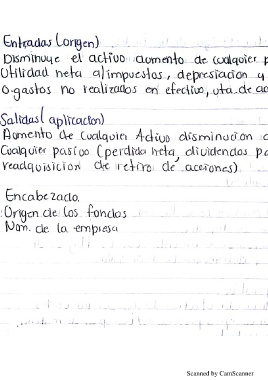 Entradas (origen)
Disminuye el activo aumento de cualquier p
Utilidad neta a/impuestos, depresiacion y
o gastos no realizados en efectivo, vta. de ac
Salidas( aplicacion)
Aumento de cualquier Activo disminucion d
Cualquier pasivo (perdida neta, dividendos pa
readquisicion de retiro de acciones).
Encabezado.
Origen de los fondos
Nom. de la empresa
Scanned by CamScanner